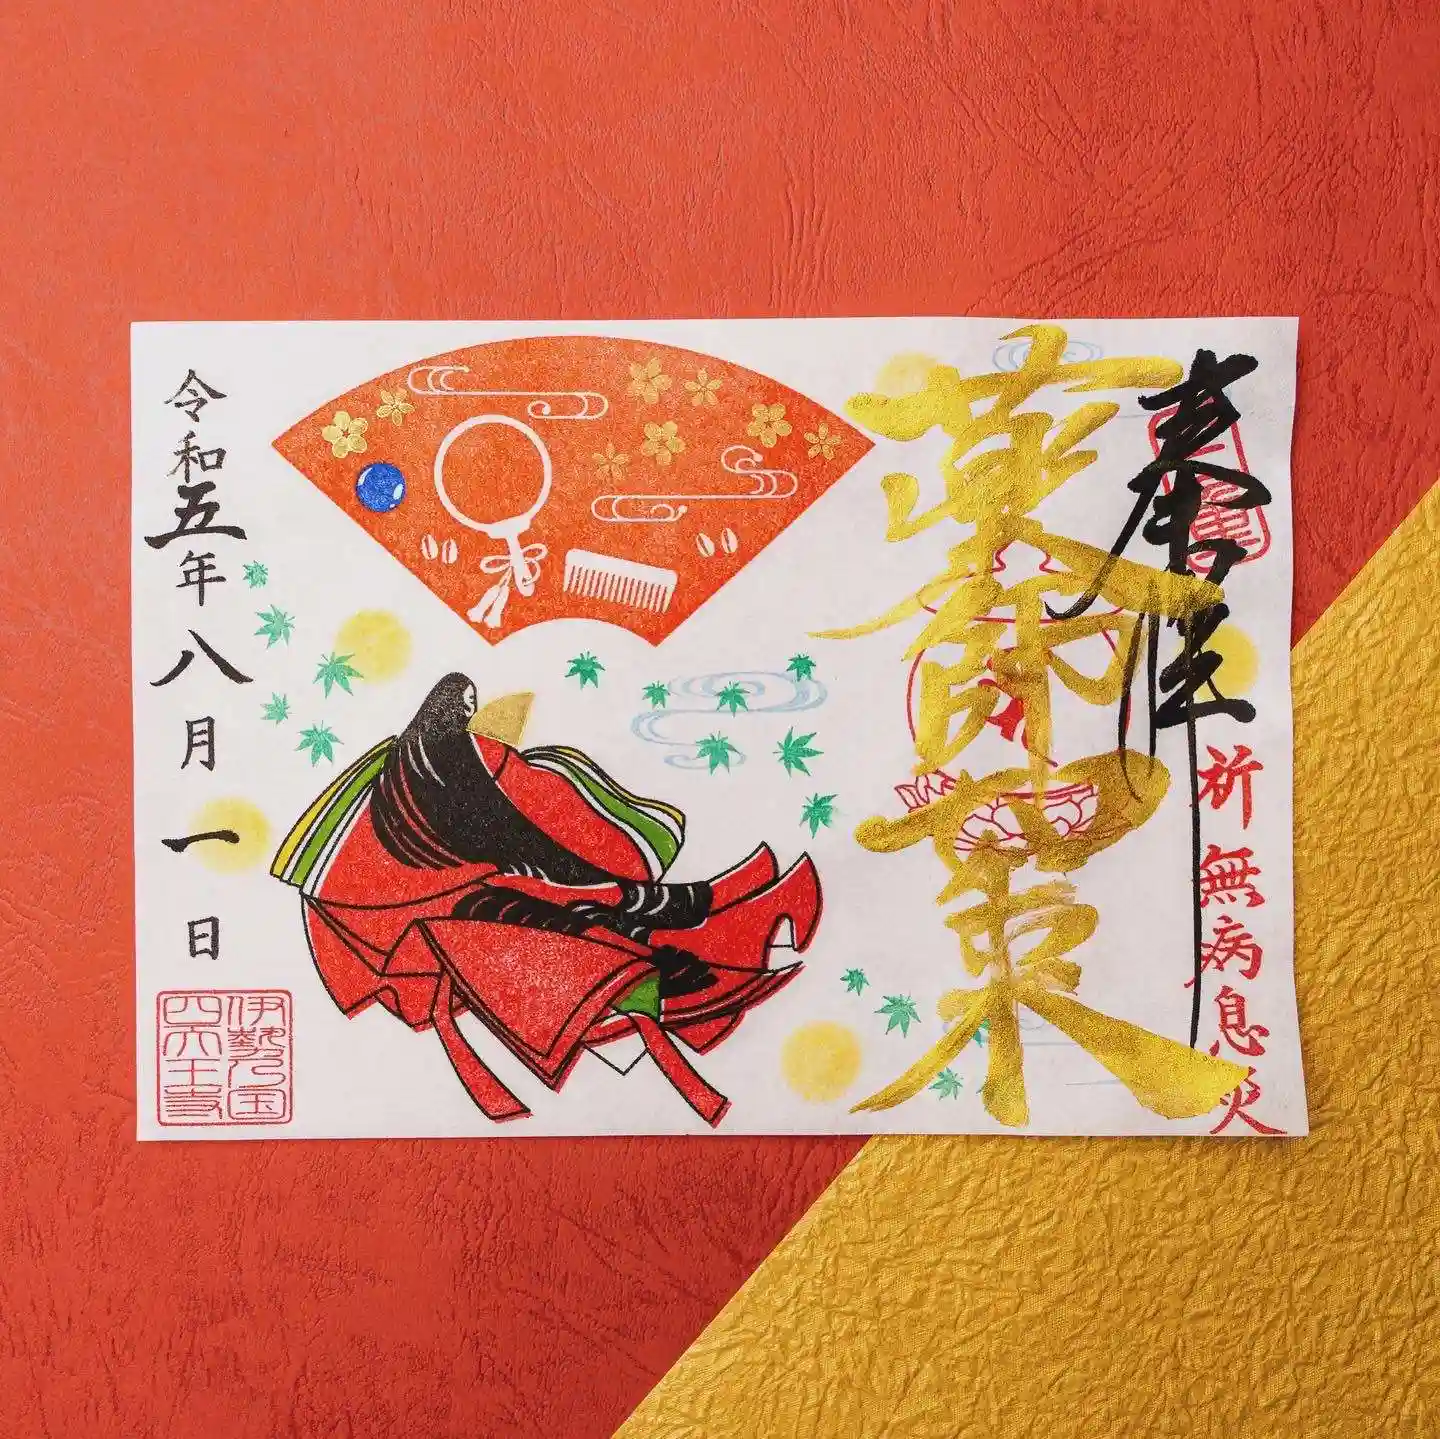 奉拝
祈無病息災
薬師如来
令和五年八月一日
伊勢乃国
四天王寺